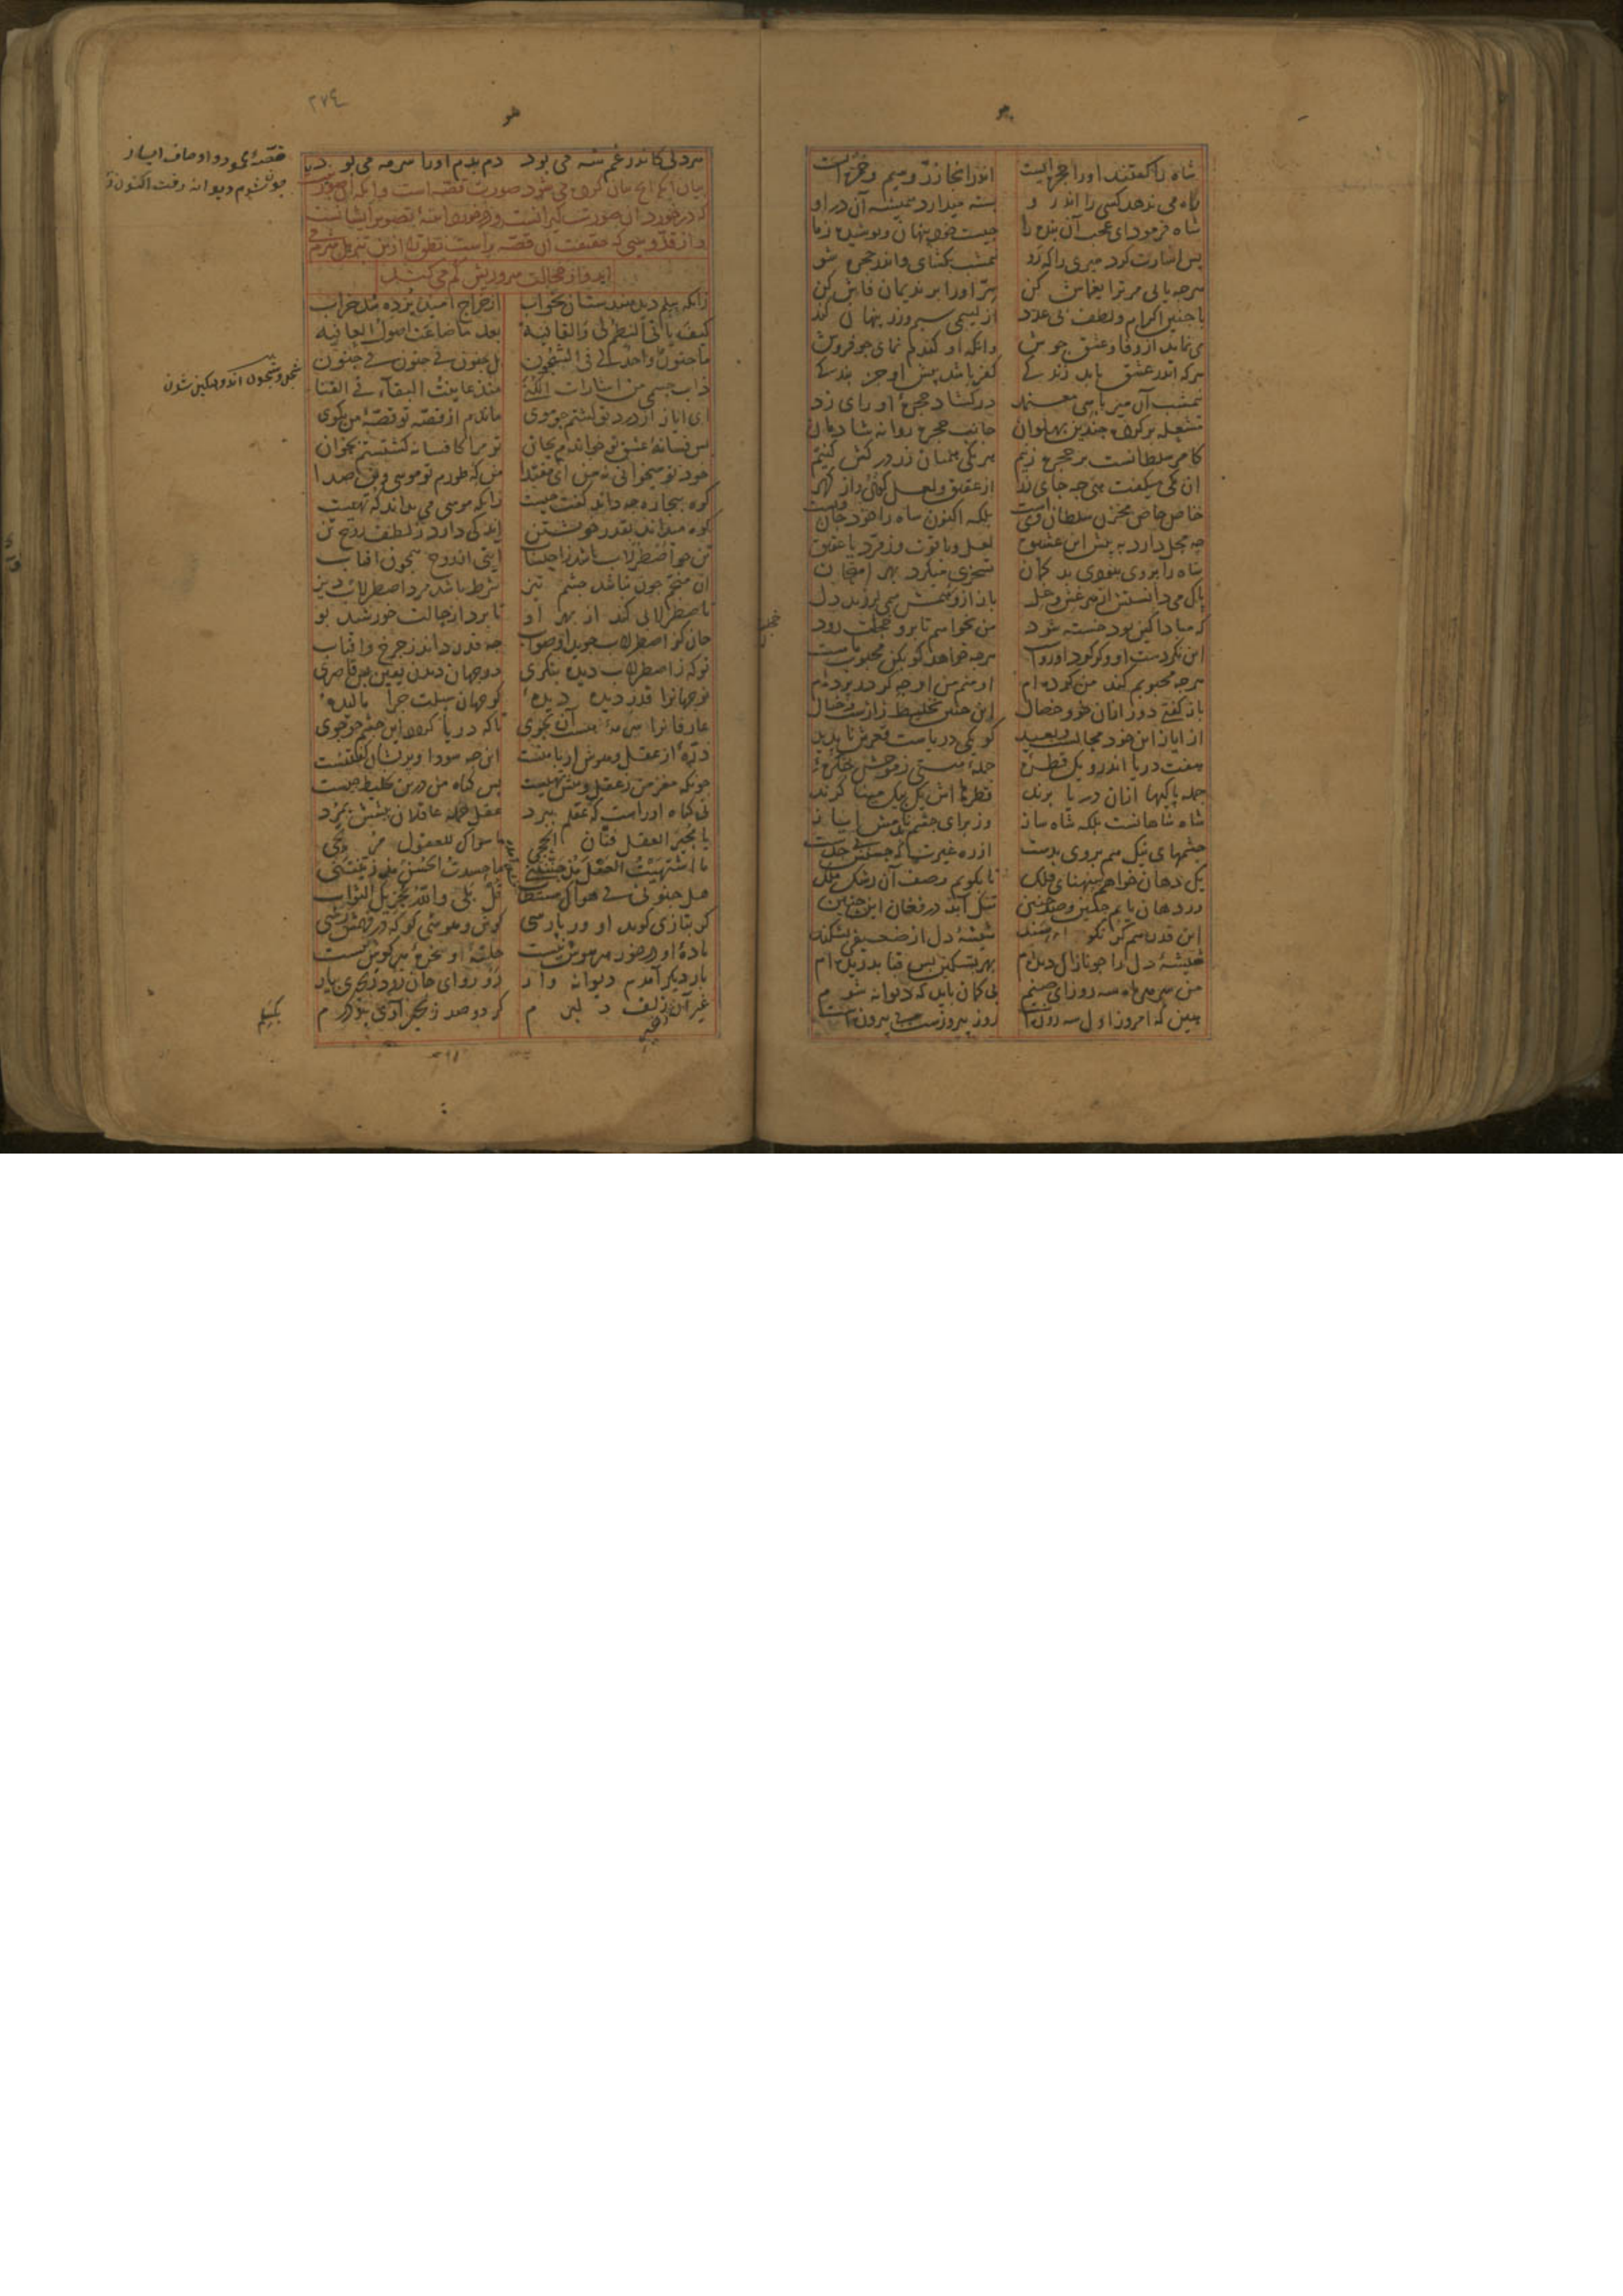 هو
شاه را گفتند او را حجره ایست اندر انجا زرّ و سیم و خمره ایست
راه می ندهد کسی را اندر و بسته میدارد همیشه آن در او
شاه فرمود ای عجب آن بنده را چیست خود پنهان و پوشیده ز ما
پس اشارت کرد میری را که رو نیمشب بکشای و اندر حجره شو
هرچه یابی مر ترا یغماش کن سرّ او را بر ندیمان فاش کن
با چنین اکرام و لطف بی عدد از لئیمی سیم و زر پنهان کند
می نماید او وفا و عشق و جوش وانگه او گندم نمای جو فروش
هر که اندر عشق یابد زندگی کفر باشد پیش او جز بندگی
نیمشب آن میر با سی معتمد در گشاد حجرۀ او رای زد
مشعله بر کرده چندین پهلوان جانب حجره روانه شادمان
کامر سلطانست بر حجره زنیم هر یکی همیان زر در کش کنیم
آن یکی میگفت هی چه جای زر از عقیق و لعل گوی و از گهر
خاص خاص مخزن سلطان ویست بلکه اکنون شاه را خود جان ویست
چه محل دارد به پیش این عشیق لعل و یاقوت و زمرّد یا عقیق
شاه را بر وی نبودی بد گمان تسخری میکرد بهر امتحان
پاک می دانستش از هر غش و غل باز از وهمش همی لرزید دل
که مبادا کین بود خسته شود من نخواهم که برو خجلت رود
این نکردست او و گر کرد او رواست هرچه خواهد گو بکن محبوب ماست
هرچه محبوبم کند من کرده ام او منم من او چه گر در پرده ام
باز گفتی دور ازان خو و خصال این چنین تخلیط ژاژست و خیال
از ایاز این خود محالست و بعید کو یکی دریاست قعرش ناپدید
هفت دریا اندرو یک قطرۀ جملۀ هستی ز موجش چکرۀ
جمله پاکیها ازان دریا برند قطرهاش یک بیک میناگرند
شاه شاهانست بلکه شاه ساز وز برای چشم بد نامش ایاز
چشمهای نیک هم بر وی بدست از ره غیرت که حسنش بی حدست
یک دهان خواهم به پهنای فلک تا بگویم وصف آن رشک ملک
ور دهان یابم چنین و صد چنین تنگ آید در فغان این حنین
این قدر هم گر نگویم ای سند شیشۀ دل از ضعیفی بشکند
شیشۀ دل را چو نازک دیده ام بهر تسکین بس قبا بدریده ام
من سر هر ماه سه روز ای صنم بی گمان باید که دیوانه شوم
هین که امروز اول سه روزه است روز پیروزست نی پیروزه است
هو
۲۷۴
هر دلی کاندر غم شه می بود دم بدم او را سر مه می بود
قصّۀ محمود و اوصاف ایاز
چون شدم دیوانه رفت اکنون ز ساز
بیان آنکه آنچ بیان کرده می شود صورت قصّه است و آنکه آن صورتیست
که درخورد آن صورت گیرانست و درخورد آینۀ تصویر ایشانست
و از قدّوسی که حقیقت آن قصّه راست نطق را ازین تنزیل شرم می
آید و از خجالت سر و ریش گم می کند
زانکه پیلم دید هندستان بخواب از خراج امید بر ده شد خراب
کیف یأتی النظم لی والقافیه بعد ما ضاعت اصول العافیه
ما جنون واحد لی فی الشجون بل جنون فی جنون فی جنون
ذاب جسمی من اشارات الکنی منذ عاینت البقاء فی الفنا
ای ایاز از درد تو گشتم چو موی ماندم از قصّه تو قصّۀ من بگوی
بس فسانۀ عشق تو خواندم بجان تو مرا کافسانه گشتستم بخوان
خود تو میخوانی نه من ای مقتدا من که طورم تو موسی وین صدا
کوه بیچاره چه داند گفت چیست زانکه موسی می بداند که تهیست
کوه میداند بقدر خویشتن اندکی دارد ز لطف روح تن
تن چو اصطرلاب باشد ز احتساب آیتی از روح همچون آفتاب
آن منجّم چون نباشد چشم تیز شرط باشد مرد اصطرلاب ریز
تا صطرلابی کند از بهر او تا برد از حالت خورشید بو
جان کز اصطرلاب جوید او صواب چه قدر داند ز چرخ و آفتاب
تو که ز اصطرلاب دیده بنگری در جهان دیدن یقین بس قاصری
تو جهان را قدر دیده دیدۀ کو جهان سبلت چرا مالیدۀ
عارفان را سرمۀ هست آن بجوی تا که دریا گردد این چشم چو جوی
ذرّۀ از عقل و هوش ار با منست این چه سودا و پریشان گفتنست
چونکه مغز من ز عقل و هش تهیست پس گناه من درین تخلیط چیست
نی گناه او راست که عقلم ببرد عقل جمله عاقلان پیشش بمرد
یا مجیر العقل فتّان الحجی ما سواک للعقول مرتجی
ما اشتهیت العقل مذ جنّنتنی ما حسدت الحسن مذ زیّنتنی
هل جنونی فی هواک مستطاب قل بلی والله یجزیک الثواب
گر بتازی گوید او ور پارسی گوش و هوشی کو که در فهمش رسی
بادۀ او درخور هر هوش نیست حلقۀ او سخرۀ هر گوش نیست
بار دیگر آمدم دیوانه وار رو رو ای جان زود زنجیری بیار
غیر آن زنجیر زلف دلبرم گر دو صد زنجیر آری بردرم